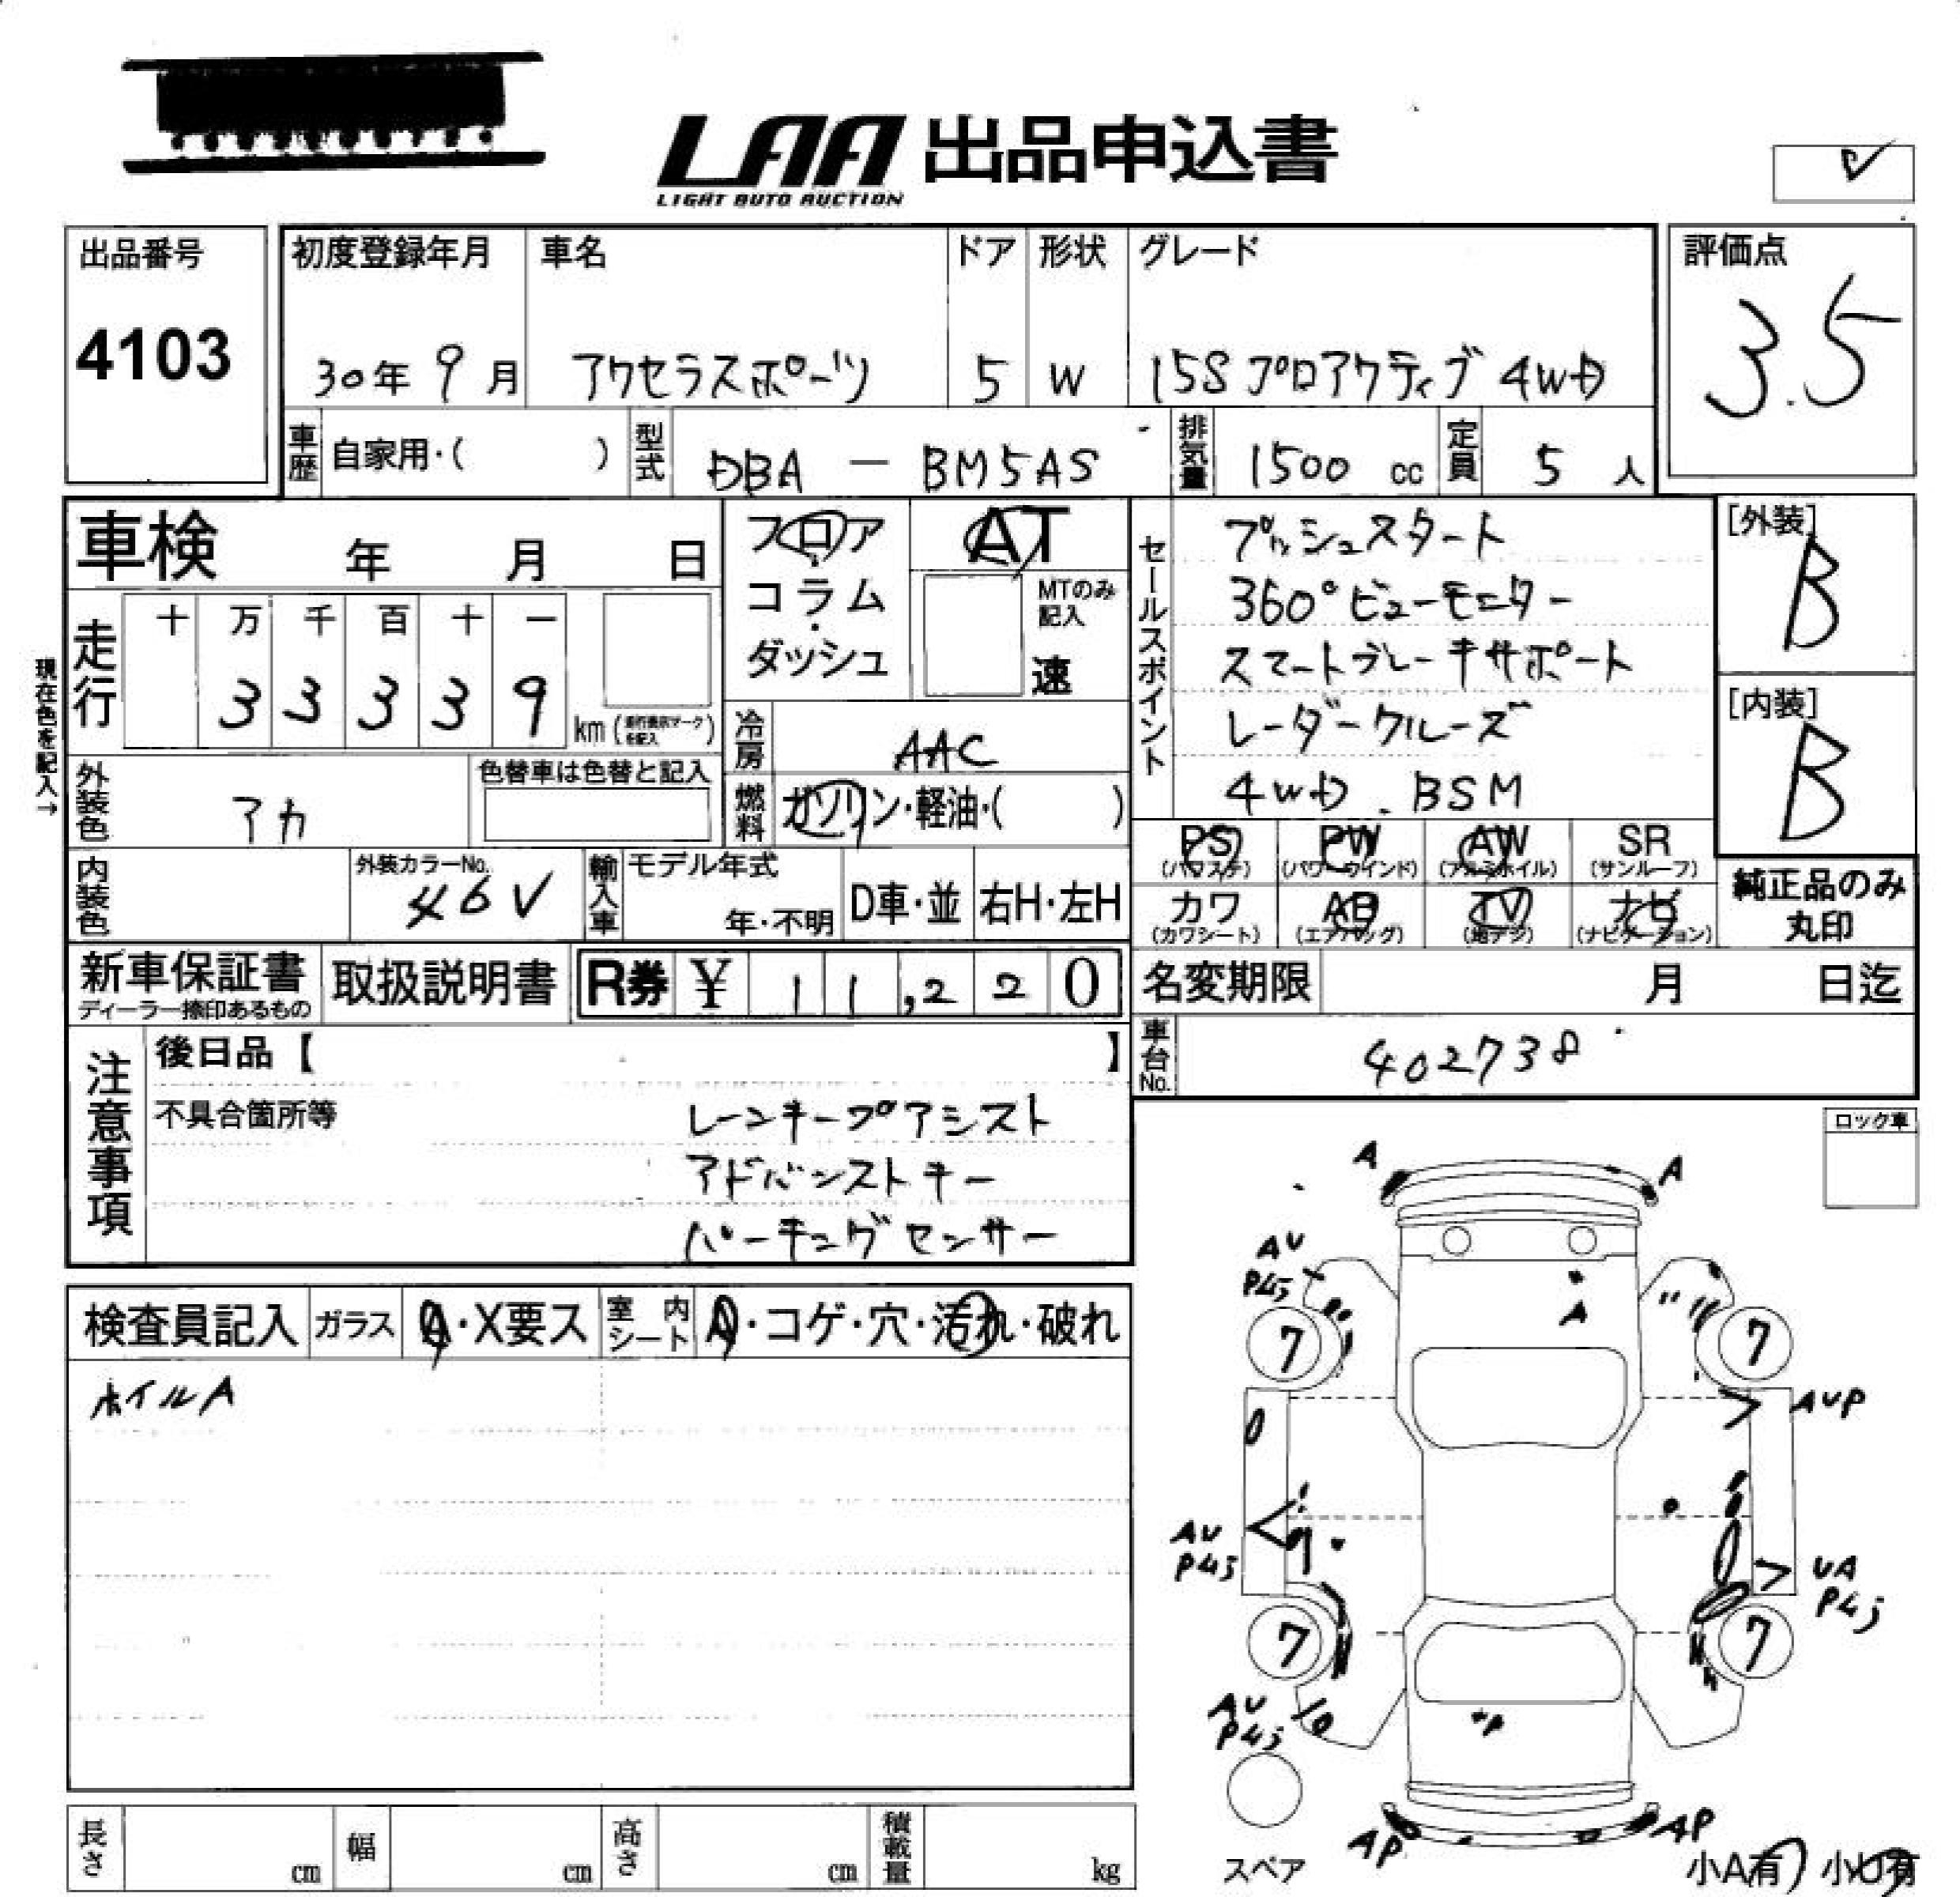 LAA 出品申込書
LIGHT AUTO AUCTION
出品番号
4103
初度登録年月 車名 ドア 形状 グレード
30年 9月 アクセラスポーツ 5 W 15S プロアクティブ 4WD
評価点
3.5
車歴 自家用・( ) 型式 DBA － BM5AS 排気量 1500 cc 定員 5 人
車検 年 月 日
フロア
・
コラム
・
ダッシュ
AT
MTのみ
記入
速
現在色を記入→
走行 十 万 千 百 十 一
3 3 3 3 9 km (走行表示マークを記入)
冷房 AAC
燃料 ガソリン・軽油・( )
外装色 アカ
色替車は色替と記入
内装色
外装カラーNo.
46V
輸入車 モデル年式
年・不明 D車・並 右H・左H
セールスポイント
プッシュスタート
360°ビューモニター
スマートブレーキサポート
レーダークルーズ
4WD. BSM
[外装]
B
[内装]
B
PS PW AW SR
(パワステ) (パワーウインド) (アルミホイル) (サンルーフ)
カワ AB TV ナビ
(カワシート) (エアバッグ) (地デジ) (ナビゲーション)
純正品のみ
丸印
新車保証書
ディーラー捺印あるもの
取扱説明書
R券 ¥ 11,220
名変期限 月 日迄
車台No. 402738
注意事項
後日品【 】
不具合箇所等
レーンキープアシスト
アドバンストキー
パーキングセンサー
ロック車
検査員記入 ガラス A・X要ス 室内シート A・コゲ・穴・汚れ・破れ
ホイルA
A A
AU
P4j
A
7 7
AUP
AU
P4j
UA
P4j
7 7
AU
P4j
P
AP AP
スペア
小A有 小U有
長さ cm 幅 cm 高さ cm 積載量 kg